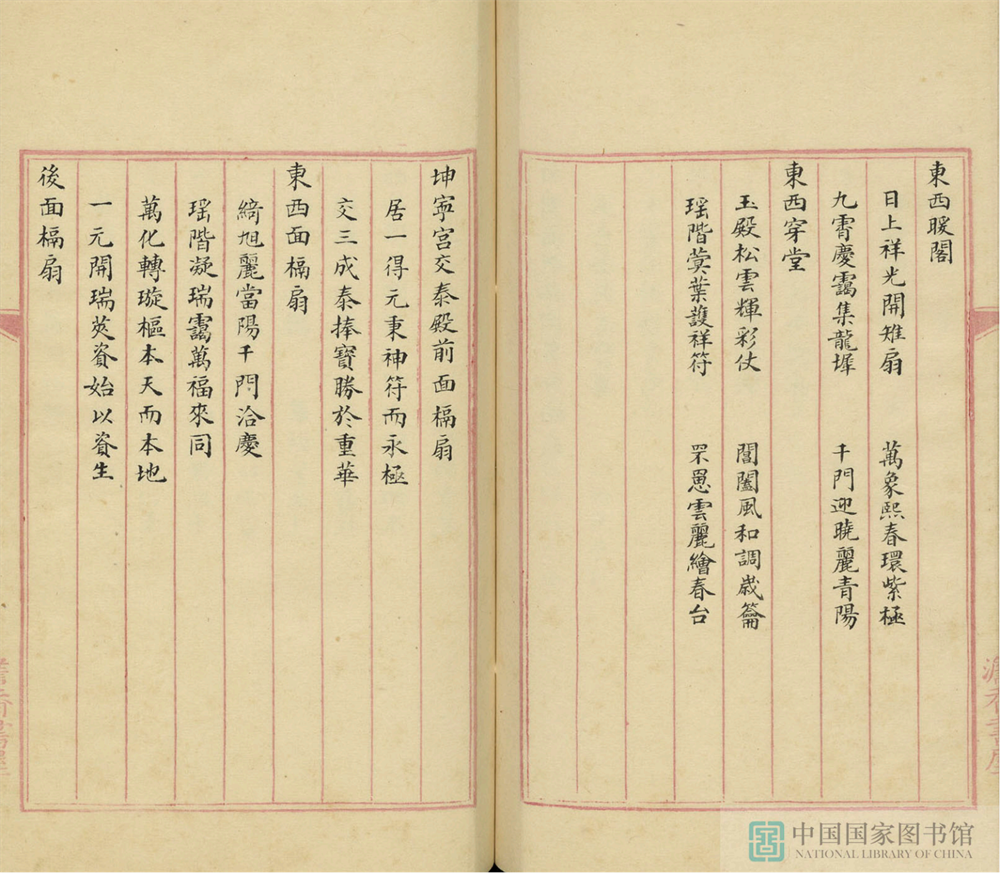 東西暖閣
日上祥光開雉扇 萬象熙春環紫極
九霄慶靄集龍墀 千門迎曉麗青陽
東西穿堂
玉殿松雲輝彩仗 閶闔風和調歲籥
瑶階蓂葉護祥符 罘罳雲麗繪春台
坤寧宮交泰殿前面槅扇
居一得元秉神符而永極
交三成泰捧寶勝於重華
東西面槅扇
綺旭麗當陽千門洽慶
瑶階凝瑞靄萬福來同
萬化轉璇樞本天而本地
一元開瑞莢資始以資生
後面槅扇
澹香書屋
中国国家图书馆
NATIONAL LIBRARY OF CHINA